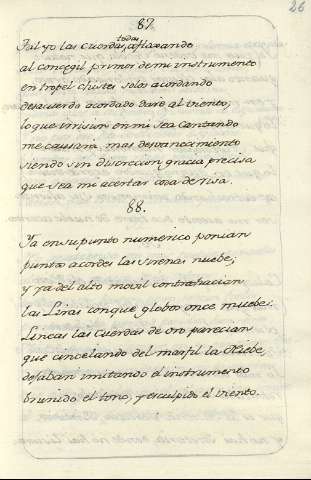 26
87.
Tal yo las cuerdas, todas afloxando
al Concegil primor de mi instrumento
en tropel chistes solos acordando
desacuerdo acordado daré al viento,
lo que irrision en mi sea cantando
me causará, mas desvanecimiento
siendo sin discrecion gracia precisa
que sea mi acertar cosa de risa.
88.
Ya en su punto numerico ponian
puntos acordes las sirenas nuebe;
y ya del alto movil contrahacian
las Liras con que globos once muebe:
Lineas las cuerdas de oro parecian
que cincelando del marfil la Niebe,
dejaban imitando el instrumento
brunido el tono, y esculpido el viento.